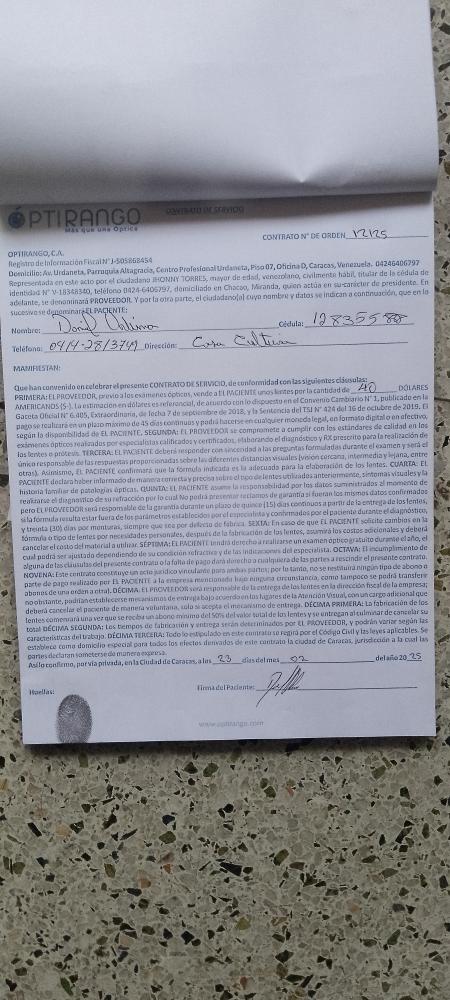 ÓPTIRANGO
Más que una Óptica
CONTRATO DE SERVICIO
CONTRATO N° DE ORDEN 12125
OPTIRANGO, C.A.
Registro de Información Fiscal N° J-505868454
Domicilio: Av. Urdaneta, Parroquia Altagracia, Centro Profesional Urdaneta, Piso 07, Oficina D, Caracas, Venezuela. 04246406797
Representada en este acto por el ciudadano JHONNY TORRES, mayor de edad, venezolano, civilmente hábil, titular de la cédula de
identidad N° V-18348340, teléfono 0424-6406797, domiciliado en Chacao, Miranda, quien actúa en su carácter de presidente. En
adelante, se denominará PROVEEDOR. Y por la otra parte, el ciudadano(a) cuyo nombre y datos se indican a continuación, que en lo
sucesivo se denominará EL PACIENTE:
Nombre: Cédula: 12835588
Teléfono: 0414-2813749 Dirección: Casa
MANIFIESTAN:
Que han convenido en celebrar el presente CONTRATO DE SERVICIO, de conformidad con las siguientes cláusulas:
PRIMERA: EL PROVEEDOR, previo a los exámenes ópticos, vende a EL PACIENTE unos lentes por la cantidad de 40 DÓLARES
AMERICANOS ($-). La estimación en dólares es referencial, de acuerdo con lo dispuesto en el Convenio Cambiario N° 1, publicado en la
Gaceta Oficial N° 6.405, Extraordinaria, de fecha 7 de septiembre de 2018, y la Sentencia del TSJ N° 424 del 16 de octubre de 2019. El
pago se realizará en un plazo máximo de 45 días continuos y podrá hacerse en cualquier moneda legal, en formato digital o en efectivo,
según la disponibilidad de EL PACIENTE. SEGUNDA: EL PROVEEDOR se compromete a cumplir con los estándares de calidad en los
exámenes ópticos realizados por especialistas calificados y certificados, elaborando el diagnóstico y RX prescrito para la realización de
los lentes o prótesis. TERCERA: EL PACIENTE deberá responder con sinceridad a las preguntas formuladas durante el examen y será el
único responsable de las respuestas proporcionadas sobre las diferentes distancias visuales (visión cercana, intermedia y lejana, entre
otras). Asimismo, EL PACIENTE confirmará que la fórmula indicada es la adecuada para la elaboración de los lentes. CUARTA: EL
PACIENTE declara haber informado de manera correcta y precisa sobre el tipo de lentes utilizados anteriormente, síntomas visuales y la
historia familiar de patologías ópticas. QUINTA: EL PACIENTE asume la responsabilidad por los datos suministrados al momento de
realizarse el diagnóstico de su refracción por lo cual No podrá presentar reclamos de garantía si fueran los mismos datos confirmados
pero EL PROVEEDOR será responsable de la garantía durante un plazo de quince (15) días continuos a partir de la entrega de los lentes,
si la fórmula resulta estar fuera de los parámetros establecidos por el especialista y confirmados por el paciente durante el diagnóstico,
y treinta (30) días por monturas, siempre que sea por defecto de fabrica. SEXTA: En caso de que EL PACIENTE solicite cambios en la
fórmula o tipo de lentes por necesidades personales, después de la fabricación de los lentes, asumirá los costos adicionales y deberá
cancelar el costo del material a utilizar. SÉPTIMA: EL PACIENTE tendrá derecho a realizarse un examen óptico gratuito durante el año, el
cual podrá ser ajustado dependiendo de su condición refractiva y de las indicaciones del especialista. OCTAVA: El incumplimiento de
alguna de las cláusulas del presente contrato o la falta de pago dará derecho a cualquiera de las partes a rescindir el presente contrato.
NOVENA: Este contrato constituye un acto jurídico vinculante para ambas partes; por lo tanto, no se restituirá ningún tipo de abono o
parte de pago realizado por EL PACIENTE a la empresa mencionada bajo ninguna circunstancia, como tampoco se podrá transferir
abonos de una orden a otra). DÉCIMA: EL PROVEEDOR será responsable de la entrega de los lentes en la dirección fiscal de la empresa;
no obstante, podrían establecerse mecanismos de entrega bajo acuerdo en los lugares de la Atención Visual, con un cargo adicional que
deberá cancelar el paciente de manera voluntaria, solo si acepta el mecanismo de entrega. DÉCIMA PRIMERA: La fabricación de los
lentes comenzará una vez que se reciba un abono mínimo del 50% del valor total de los lentes y se entregan al culminar de cancelar su
total DÉCIMA SEGUNDA: Los tiempos de fabricación y entrega serán determinados por EL PROVEEDOR, y podrán variar según las
características del trabajo. DÉCIMA TERCERA: Todo lo estipulado en este contrato se regirá por el Código Civil y las leyes aplicables. Se
establece como domicilio especial para todos los efectos derivados de este contrato la ciudad de Caracas, jurisdicción a la cual las
partes declaran someterse de manera expresa.
Así lo confirmo, por vía privada, en la Ciudad de Caracas, a los 23 días del mes 02 del año 2025
Huellas: Firma del Paciente:
www.optirango.com